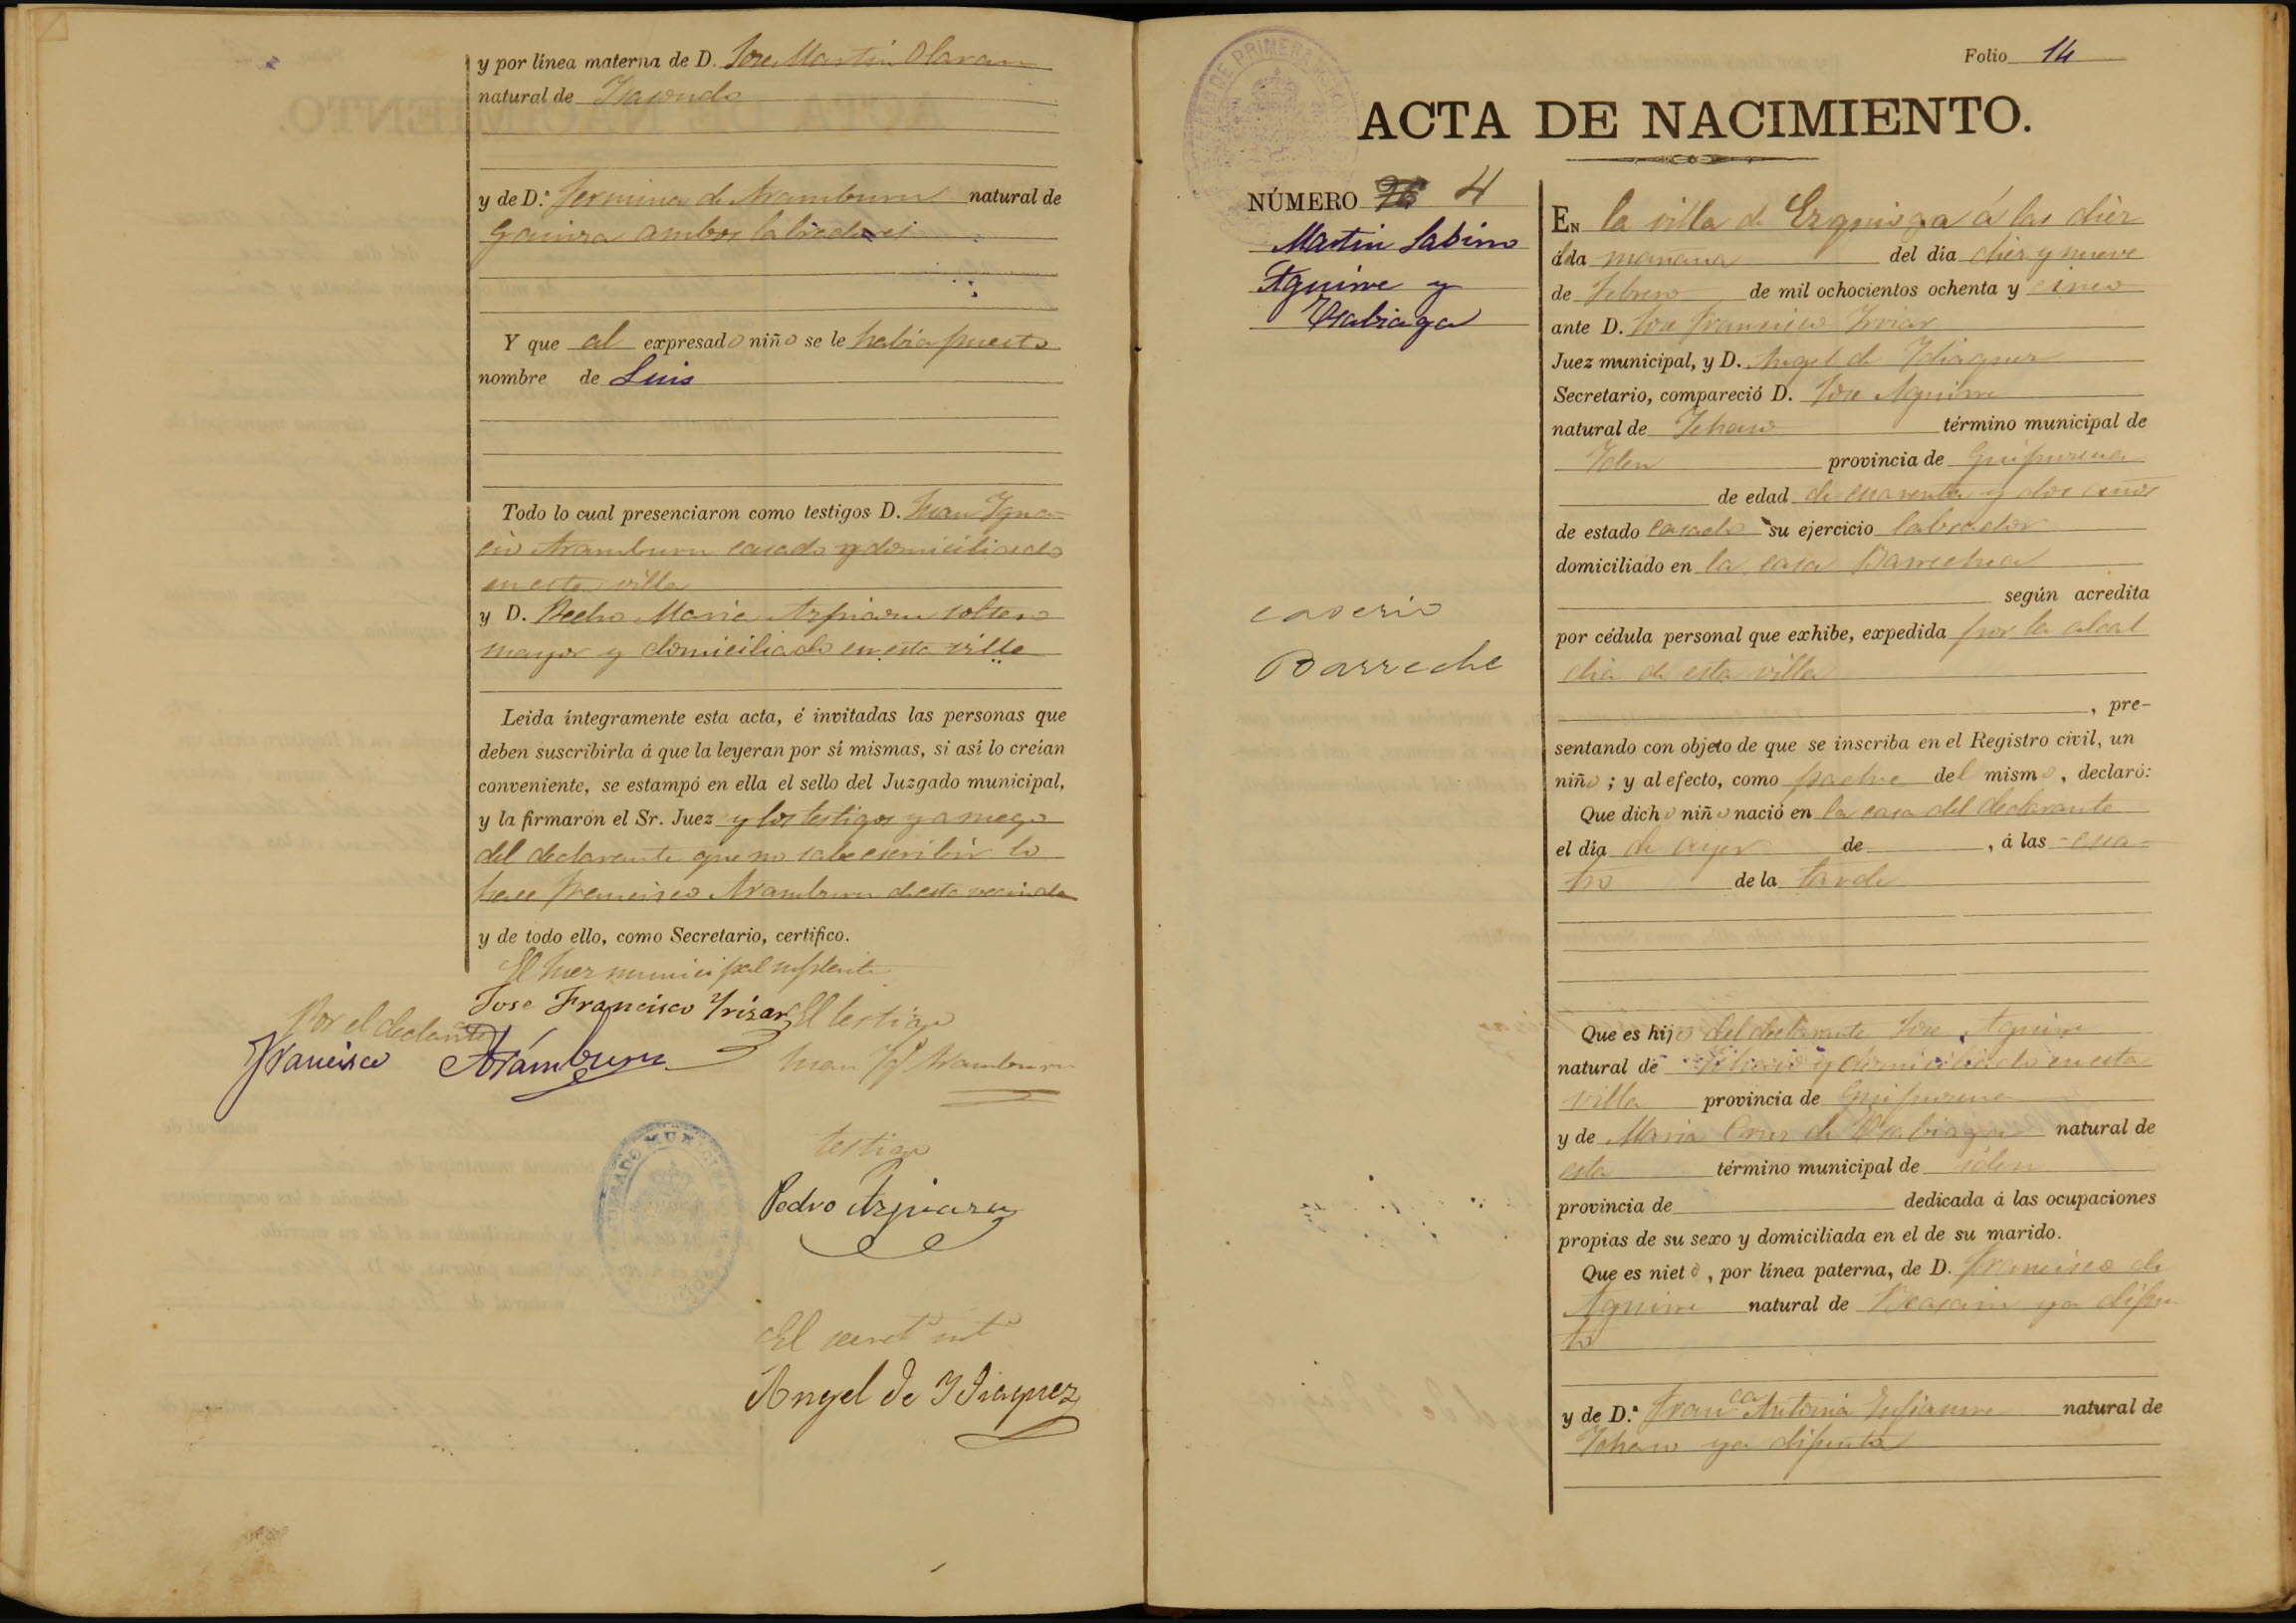 y por línea materna de D. Jose Martin Olaran
natural de Ysasondo
y de D.ª Fermina de Aramburu natural de
Gainza ambos labradores
Y que al expresado niño se le habia puesto
nombre de Luis
Todo lo cual presenciaron como testigos D. Juan Ygna-
cio Aramburu casado y domiciliado
en esta villa
y D. Pedro Maria Azpiazu soltero
mayor y domiciliado en esta villa
Leida íntegramente esta acta, é invitadas las personas que
deben suscribirla á que la leyeran por sí mismas, si así lo creían
conveniente, se estampó en ella el sello del Juzgado municipal,
y la firmaron el Sr. Juez y los testigos y a ruego
del declarante que no sabe escribir lo
hace Francisco Aramburu de esta vecindad
y de todo ello, como Secretario, certifico.
El Juez municipal suplente
Jose Francisco Yrizar
Por el declarante
Francisco Arámburu
El testigo
Juan Yg.º Aramburu
testigo
Pedro Azpiazu
El secret.º int.º
Angel de Ydiaquez
Folio 14
ACTA DE NACIMIENTO.
NÚMERO 4
Martin Sabino
Aguirre y
Usabiaga
caserio
Barreche
EN la villa de Ezquioga á las diez
de la mañana del dia diez y nueve
de Febrero de mil ochocientos ochenta y cinco
ante D. Jose Francisco Yrizar
Juez municipal, y D. Angel de Ydiaquez
Secretario, compareció D. Jose Aguirre
natural de Ychaso término municipal de
Yden provincia de Guipuzcoa
de edad de cuarenta y dos años
de estado casado su ejercicio labrador
domiciliado en la casa Barrechea
según acredita
por cédula personal que exhibe, expedida por la alcal
dia de esta villa
, pre-
sentando con objeto de que se inscriba en el Registro civil, un
niño ; y al efecto, como padre del mismo , declaró:
Que dicho niño nació en la casa del declarante
el día de ayer de , á las cua-
tro de la tarde
Que es hijo del declarante Jose Aguirre
natural de Ychaso y domiciliado en esta
villa provincia de Guipuzcoa
y de Maria Cruz de Usabiaga natural de
esta término municipal de iden
provincia de dedicada á las ocupaciones
propias de su sexo y domiciliada en el de su marido.
Que es nieto , por línea paterna, de D. Francisco de
Aguirre natural de Beasain ya difun
to
y de D.ª Fran.ca Antonia natural de
Ychaso ya difunta